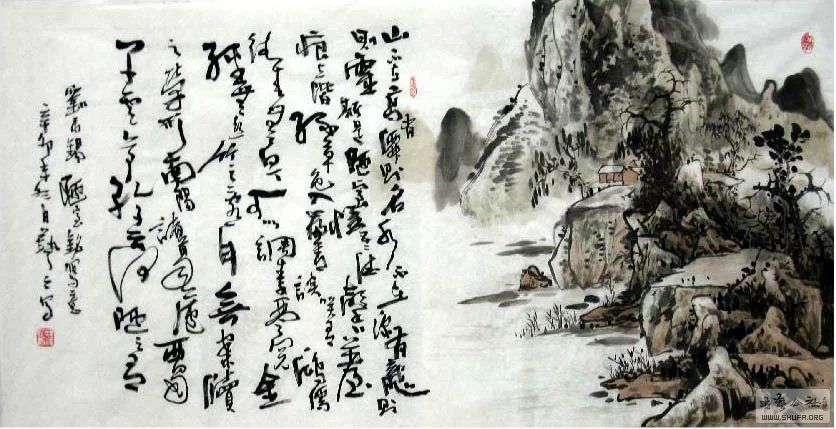 山不在高有僊則名水不在深有龍則
靈斯是陋室惟吾德馨苔
痕上階綠草色入簾青談笑有鴻儒
往來無白丁可以調素琴閱金
經無絲竹之亂耳無案牘
之勞形南陽諸葛廬西蜀
子雲亭孔子云何陋之有
劉禹錫陋室銘寫意
辛卯年秋月
WWW.SHUFA.ORG